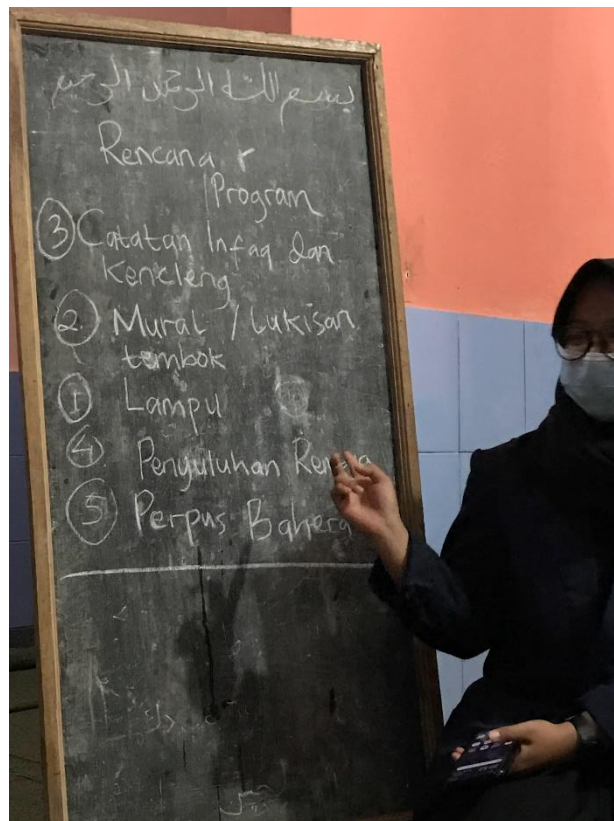 بسم الله الرحمن الرحيم
Rencana
Program
③ Catatan Infaq dan
Kencleng
② Mural / Lukisan
tembok
① Lampu
④ Penyuluhan
⑤ Perpus